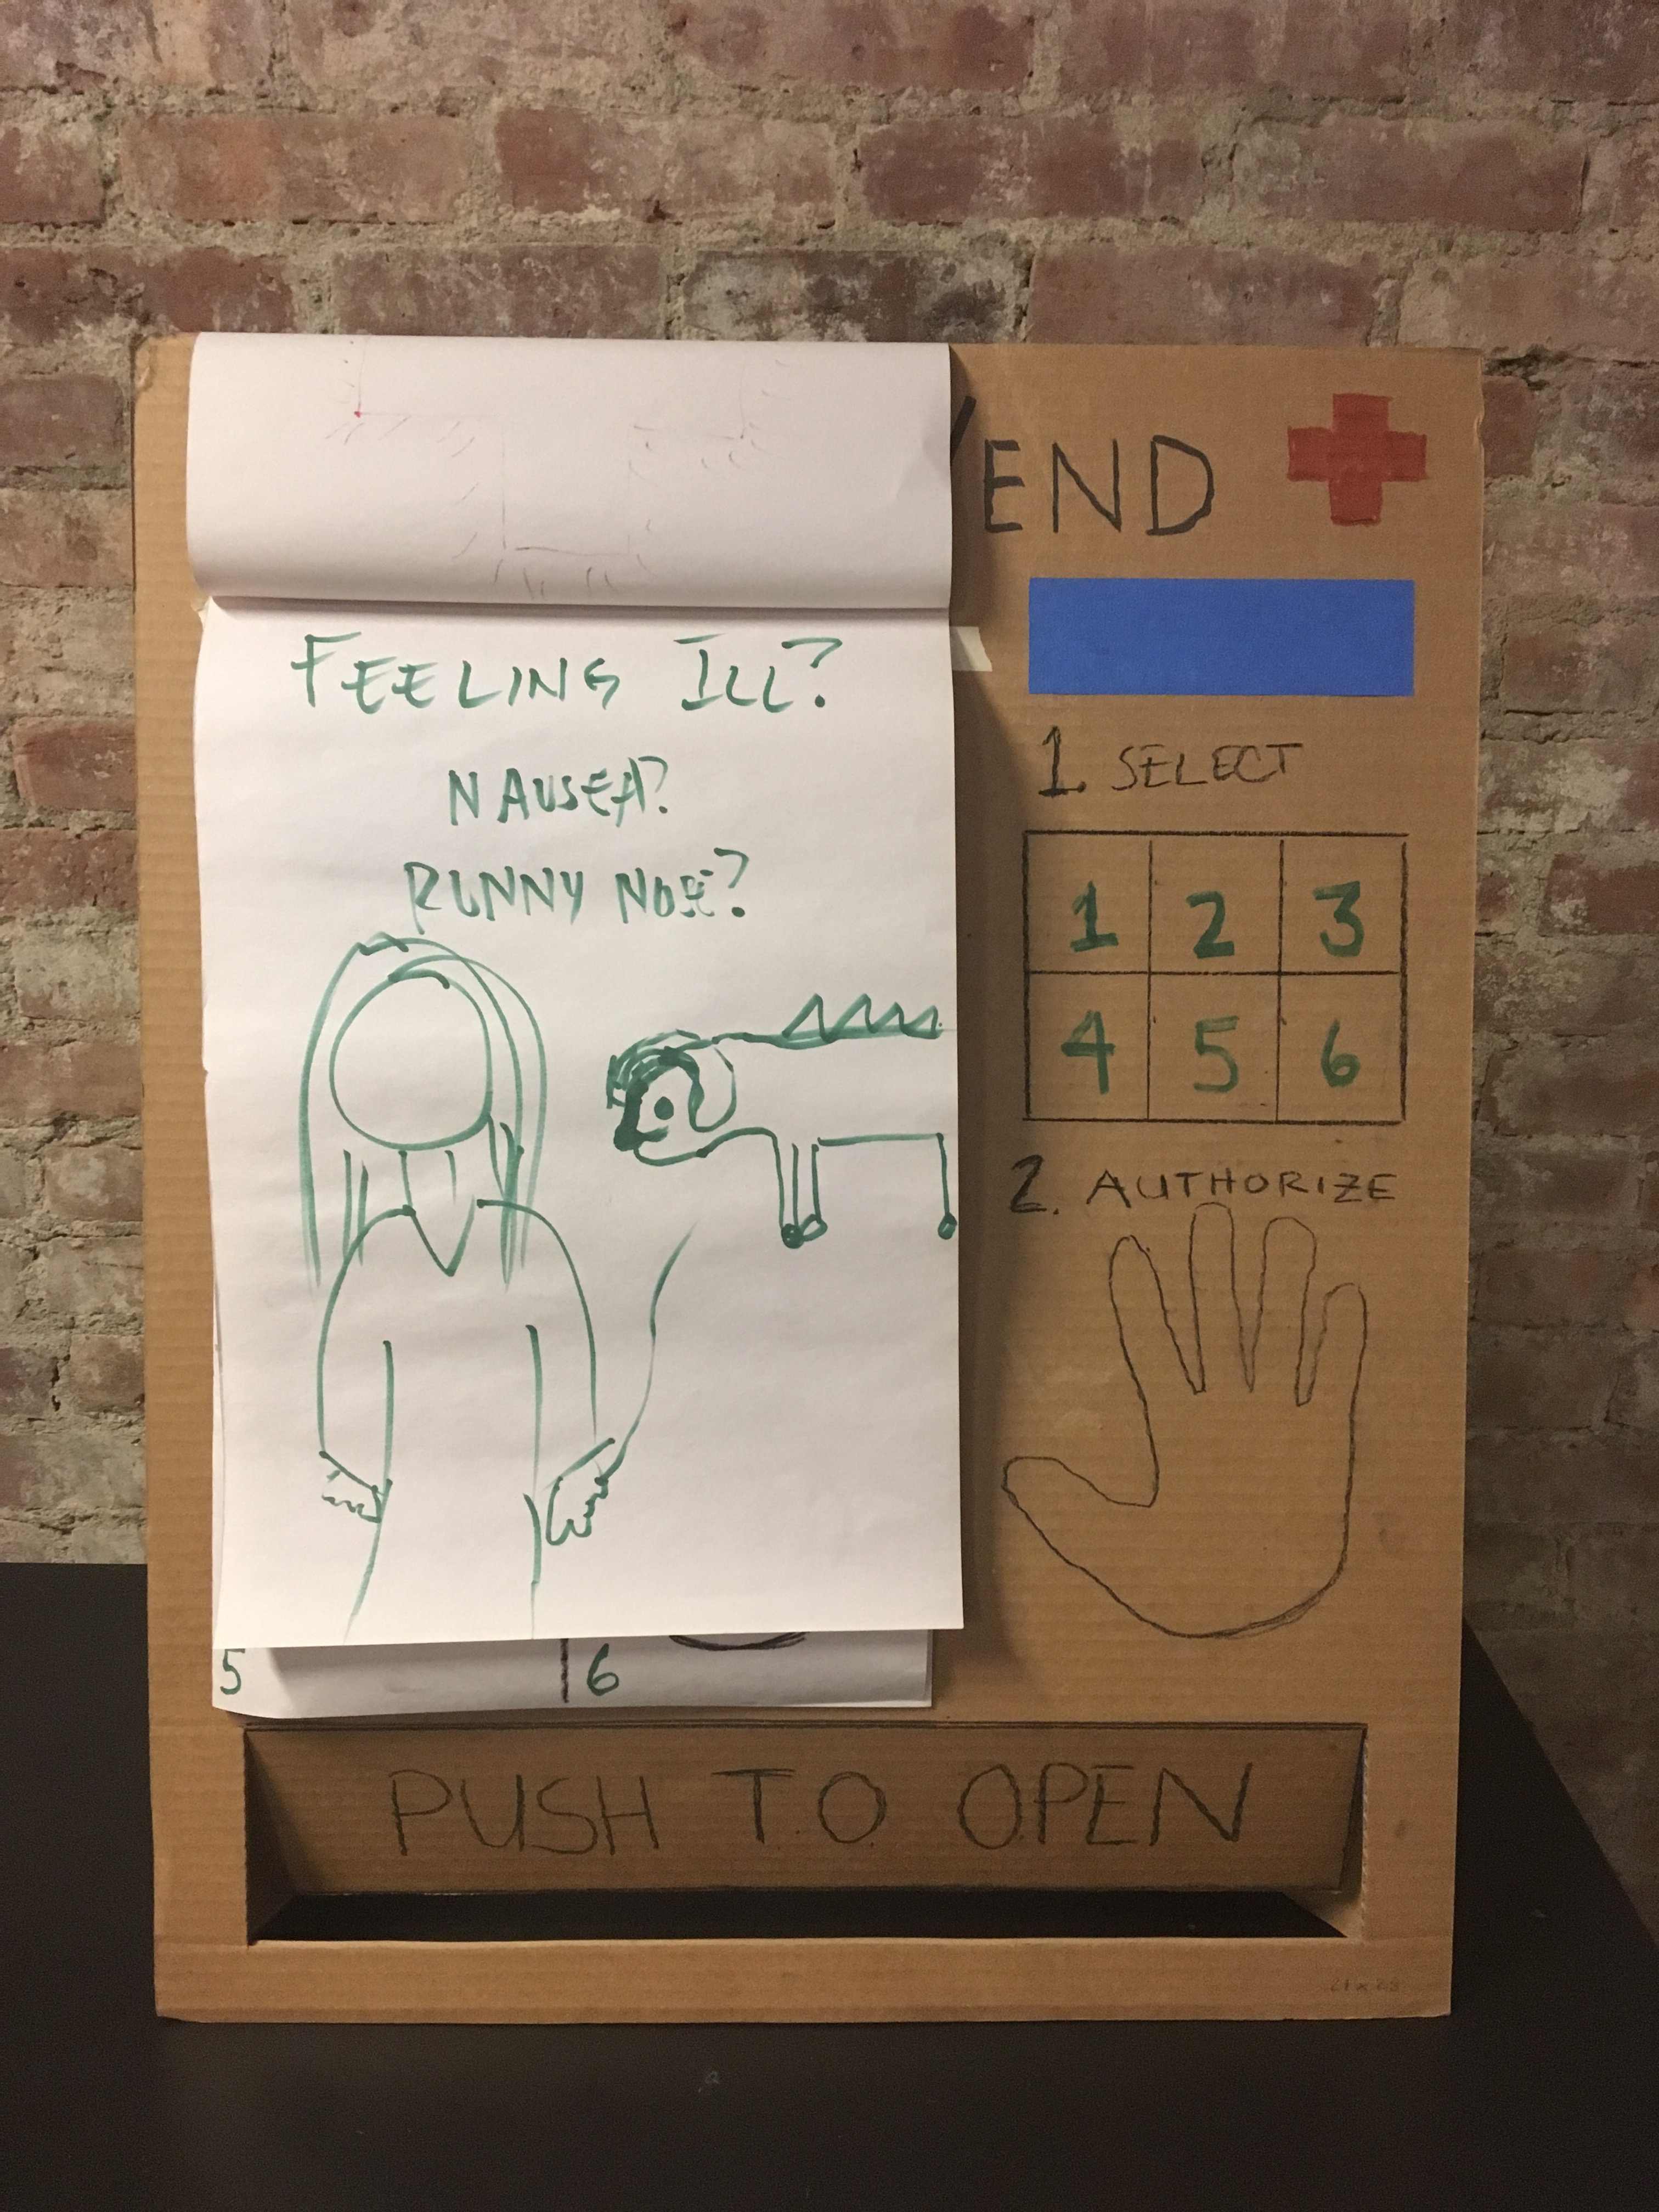 VEND
FEELING ILL?
NAUSEA?
RUNNY NOSE?
1. SELECT
1 2 3
4 5 6
2. AUTHORIZE
5 6
PUSH TO OPEN